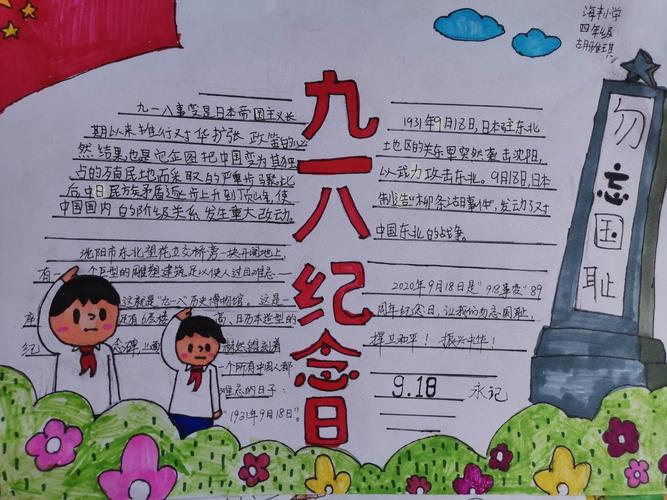 海丰小学
四年级
胡雅琪
九一八纪念日
九一八事变是日本帝国主义长
期以来推行对华扩张政策的必
然结果也是它企图把中国变为其独
占的殖民地而采取的严重步骤此
后中日民族矛盾逐渐上升到顶峰,使
中国国内的阶级关系发生重大改动。
沈阳市东北望花立交桥旁一块开阔地上,
有一个巨型的雕塑建筑足以使人过目难忘一
这就是"九一八"历史博物馆。这是一
座 还有6层楼 高、日历本造型的
纪念碑 上面 刻着
一个所有中国人都
难忘的日子:
"1931年9月18日"。
1931年9月18日,日本驻东北
地区的关东军突然袭击沈阳,
以武力攻击东北。9月18日,日本
制造"柳条沽事件",发动了对
中国东北的战争。
2020年9月18日是"918事变"89
周年纪念日,让我们勿忘国耻,
捍卫和平!振兴中华!
9.18 永记
勿忘国耻